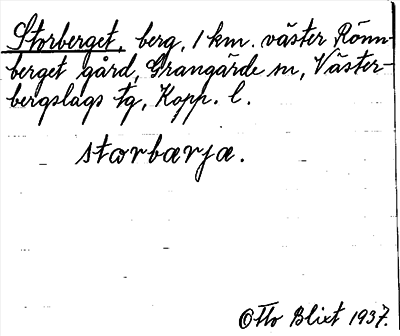 Storberget, berg, 1 km. väster Rönn-
berget gård, Grangärde sn, Väster-
bergslags tg, Kopp. l.
storbærja.
Otto Blixt 1937.